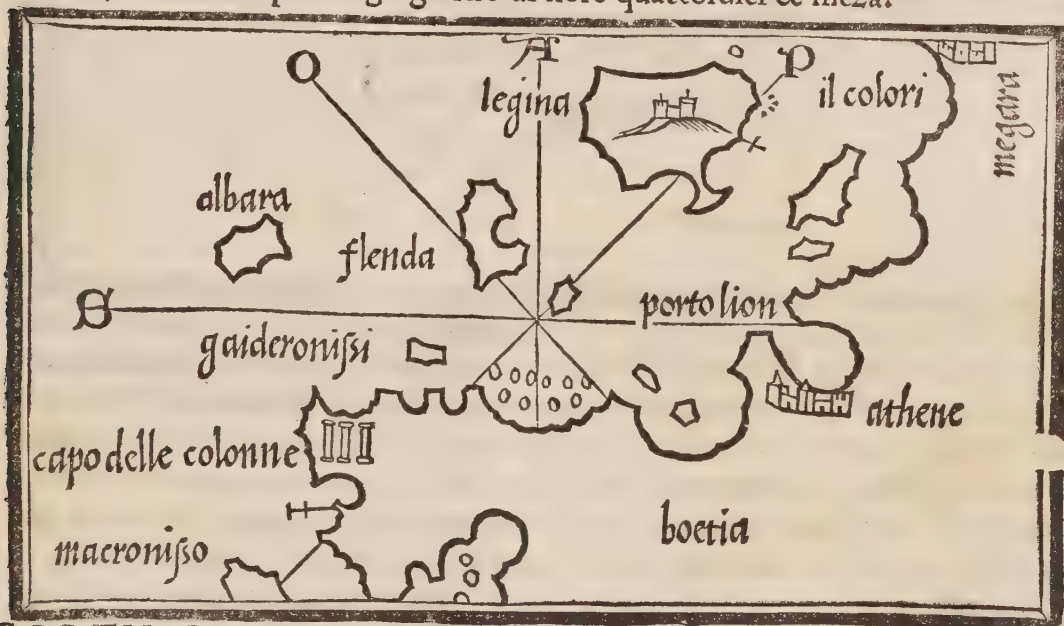 quattordici & meza.
O
A
P
legina
il colori
megara
albara
flenda
S
porto lion
gaideronissi
athene
capo delle colonne
boetia
macronisso